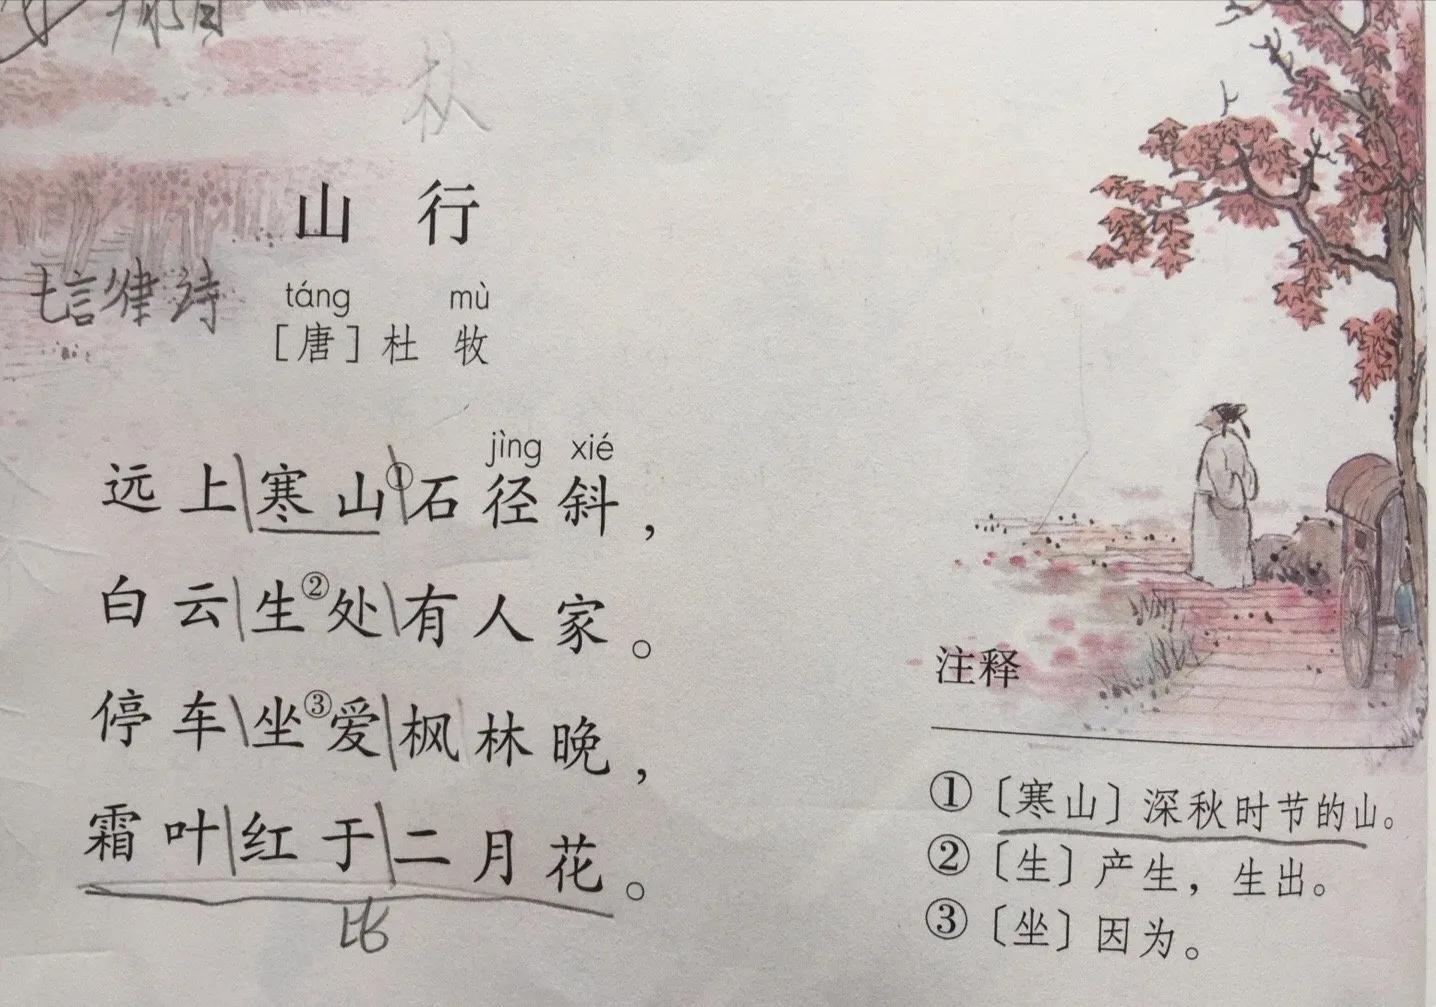 秋
山 行
律诗
táng mù
[唐] 杜 牧
jìng xié
远上寒山①石径斜，
白云生②处有人家。
停车坐③爱枫林晚，
霜叶红于二月花。
比
注释
①〔寒山〕深秋时节的山。
②〔生〕产生，生出。
③〔坐〕因为。